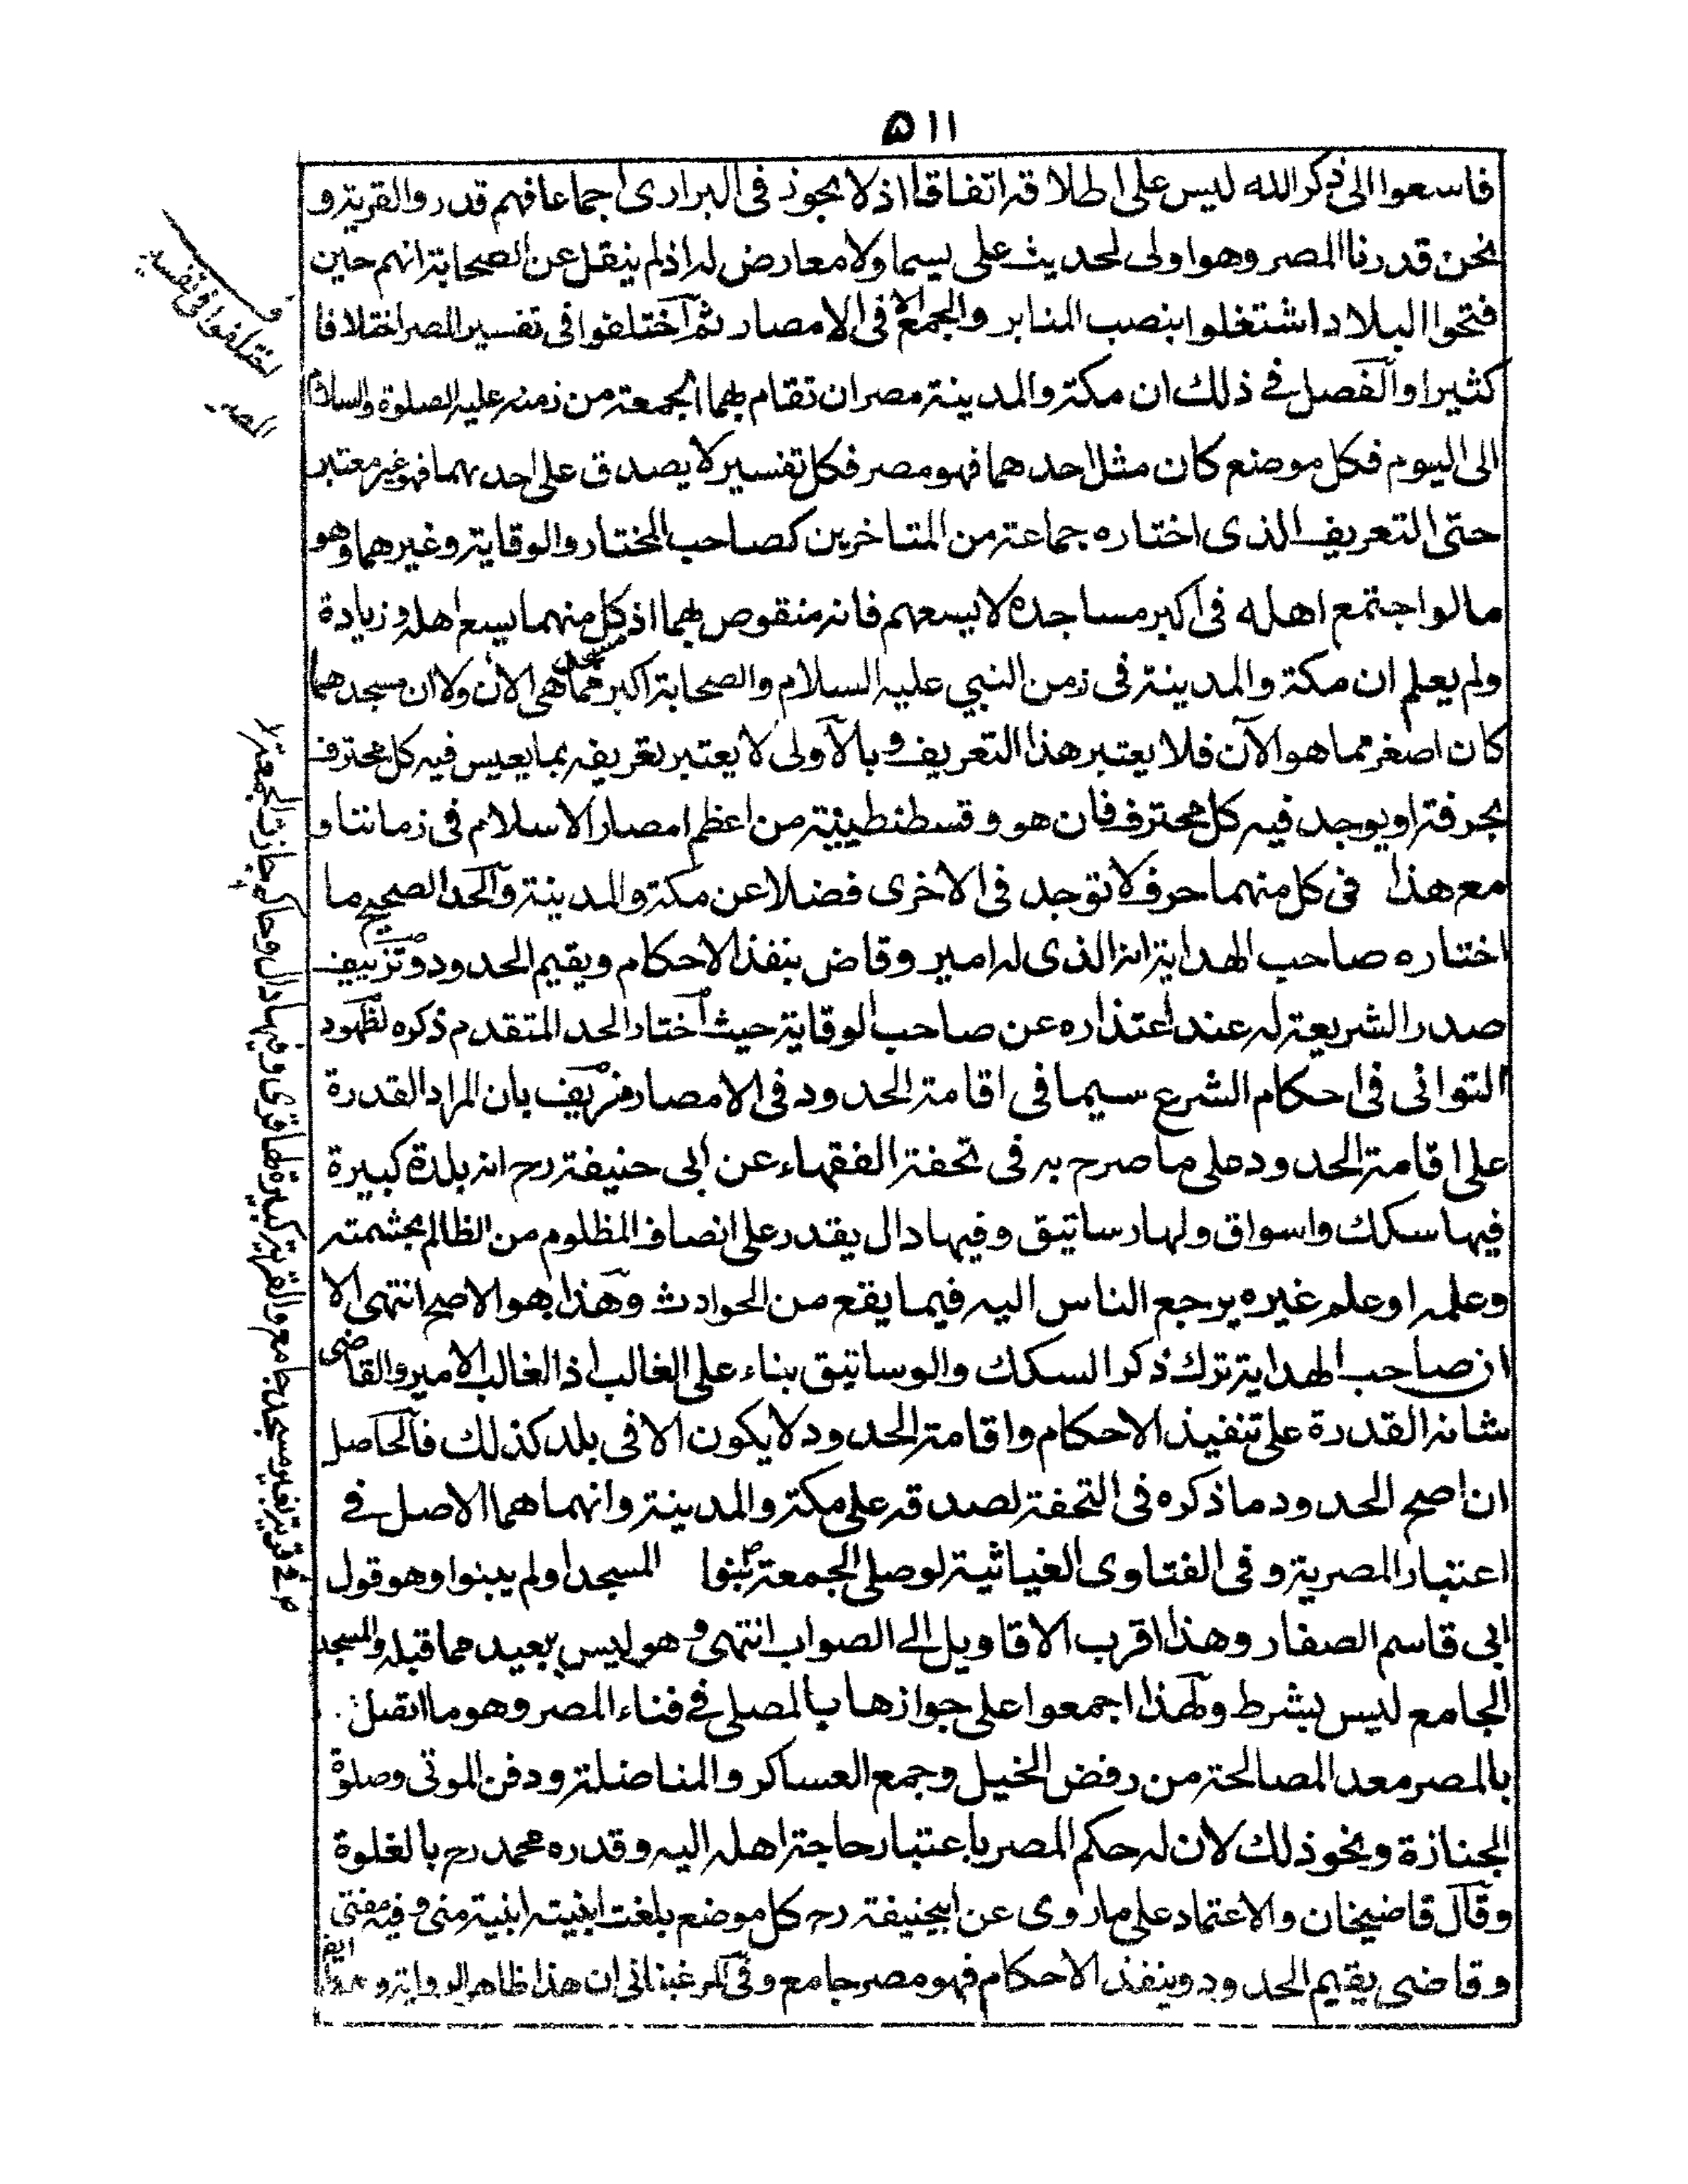 ۵۱۱
فاسعوا الى ذكر الله ليس على اطلاقه اتفاقا اذ لا يجوز فى البرارى اجماعا فهم قدروا القرية و
نحن قدرنا المصر وهو اولى لحديث على سيما ولا معارض له اذ لم ينقل عن الصحابة انهم حين
فتحوا البلاد اشتغلوا بنصب المنابر والجمع الا فى الامصار ثم اختلفوا فى تفسير المصر اختلافا
كثيرا والفصل فى ذلك ان مكة والمدينة مصران تقام بهما الجمعة من زمنه عليه الصلوة والسلام
الى اليوم فكل موضع كان مثل احدهما فهو مصر فكل تفسير لا يصدق على احدهما فهو غير معتبر
حتى التعريف الذى اختاره جماعة من المتاخرين كصاحب المختار والوقاية وغيرهما وهو
ما لو اجتمع اهله فى اكبر مساجده لا يسعهم فانه منقوص بهما اذ كل منهما يسع اهله وزيادة
ولم يعلم ان مكة والمدينة فى زمن النبي عليه السلام والصحابة اكبر مما هى الآن ولا ان مسجدهما
كان اصغر مما هو الآن فلا يعتبر هذا التعريف وبالاولى لا يعتبر تعريفه بما يعيس فيه كل محترف
بحرفته او يوجد فيه كل محترف فان هو و قسطنطينية من اعظم امصار الاسلام فى زماننا و
مع هذا فى كل منهما حرف لا توجد فى الاخرى فضلا عن مكة والمدينة والحد الصحيح ما
اختاره صاحب الهداية انه الذى له امير وقاض ينفذ الاحكام ويقيم الحدود وتزييف
صدر الشريعة له عند اعتذاره عن صاحب الوقاية حيث اختار الحد المتقدم ذكره لظهود
التوانى فى احكام الشرع سيما فى اقامة الحدود فى الامصار مزيف بان المراد القدرة
على اقامة الحدود على ما صرح به فى تحفة الفقهاء عن ابى حنيفة رح انه بلدة كبيرة
فيها سكك واسواق ولها رساتيق وفيها دال يقدر على انصاف المظلوم من الظالم بحشمته
وعلمه او علم غيره يرجع الناس اليه فيما يقع من الحوادث وهذا هو الاصح انتهى الا
ان صاحب الهداية ترك ذكر السكك والوساتيق بناء على الغالب اذ الغالب الامير والقاضى
شانه القدرة على تنفيذ الاحكام واقامة الحدود لا يكون الا فى بلد كذلك فالحاصل
ان اصح الحدود ما ذكره فى التحفة لصدقه على مكة والمدينة وانهما هما الاصل فى
اعتبار المصرية وفى الفتاوى الغياثية لو صلى الجمعة بنوا المسجد او لم يبنوا وهو قول
ابى قاسم الصفار وهذا اقرب الاقاويل الى الصواب انتهى وهو ليس ببعيد مما قبله والمسجد
الجامع ليس بشرط ولهذا اجمعوا على جوازها بالمصلى فى فناء المصر وهو ما اتصل
بالمصر معد المصالحة من رفض الخيل وجمع العساكر والمناضلة ودفن الموتى وصلوة
الجنازة ونحو ذلك لان له حكم المصر باعتبار حاجة اهله اليه وقدره محمد رح بالغلوة
وقال قاضيخان والاعتماد على ما روى عن ابيحنيفة رح كل موضع بلغت ابنيته ابنية منى وفيه مفتى
وقاضى يقيم الحدود وينفذ الاحكام فهو مصر جامع وفى المرغينانى ان هذا ظاهر الرواية و
اختلفوا فى تفسير
المصر
فى قرية بغير مسجد جامع والقرية كبيرة لها قرى وفيها دال وحاكم جازت الجمعة